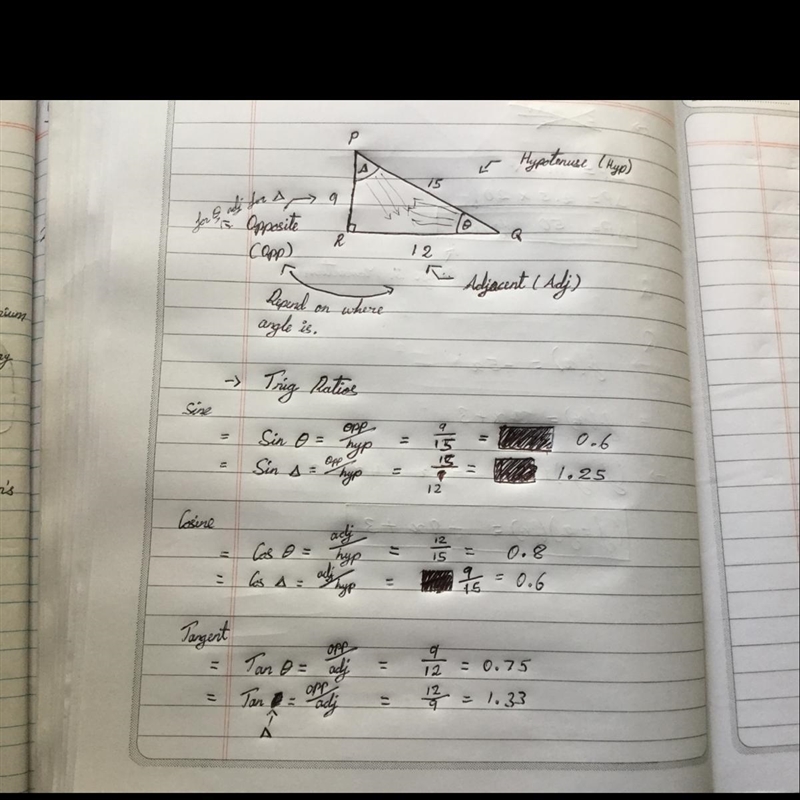 P
Δ
15
Hypotenuse (Hyp)
for θ adj for Δ
9
Opposite
θ
R
12
Q
(Opp)
Adjacent (Adj)
Depend on where
angle is.
→ Trig Ratios
Sine
= Sin θ = opp/hyp = 9/15 = 0.6
= Sin Δ = opp/hyp = 15/12 = 1.25
Cosine
= Cos θ = adj/hyp = 12/15 = 0.8
= Cos Δ = adj/hyp = 9/15 = 0.6
Tangent
= Tan θ = opp/adj = 9/12 = 0.75
= Tan = opp/adj = 12/9 = 1.33
Δ